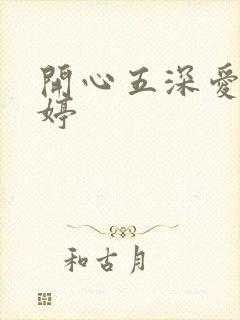 開心五深愛
婷
和古月